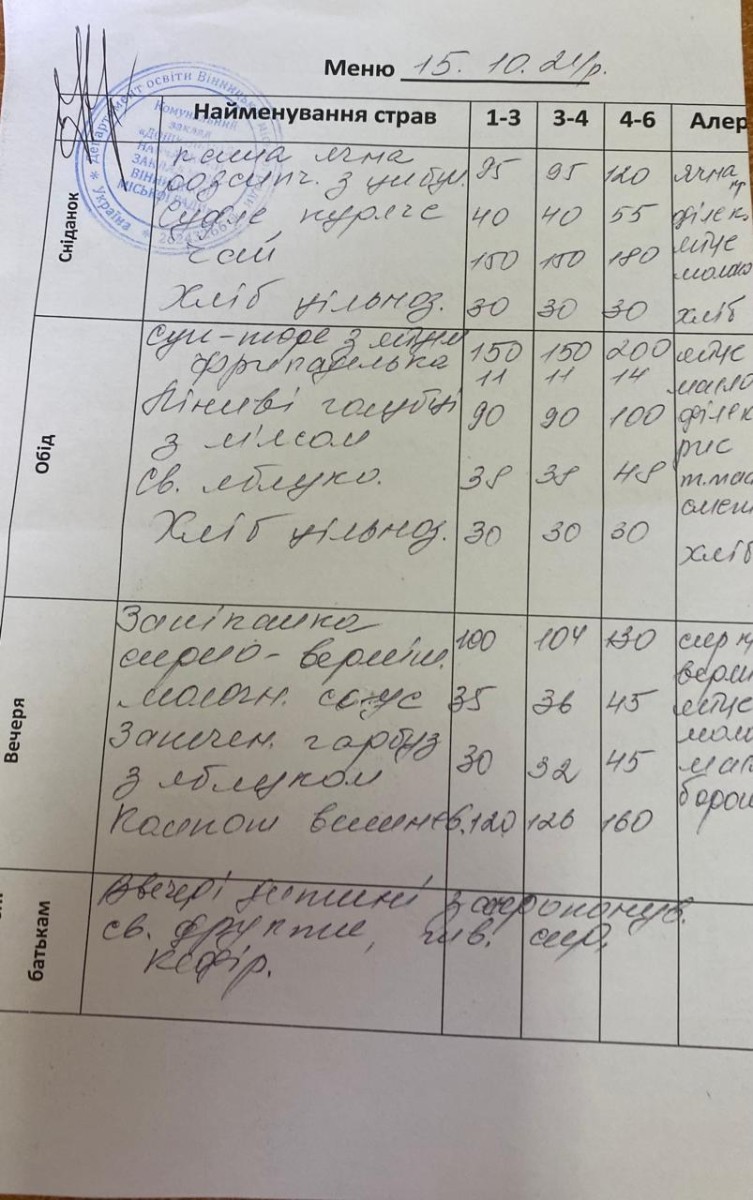 Меню 15. 10. 24р.
Найменування страв 1-3 3-4 4-6 Алер
Сніданок
каша ячна
розсипч. з цибул. 95 95 120 ячна
Суфле куряче 40 40 55 філек
яйце
Чай 150 150 180 молоко
Хліб цільноз. 30 30 30 хліб
Обід
Суп-пюре з яйцем 150 150 200 яйце
фрикаделька 11 11 14 масло
Ліниві голубці 90 90 100 філек
з м'ясом рис
Св. яблуко. 38 38 48 т.мас
смет
Хліб цільноз. 30 30 30 хліб
Вечеря
Запіканка
сирно-верміш. 100 104 130 сир к
верм
молочн. соус 35 36 45 яйце
моло
Запечен. гарбуз
з яблуком 30 32 45 мас
борош
Компот вишнев. 120 126 160
батькам
Ввечері дитині запропонув.
св. фрукти, кив. сир,
кефір.
департамент освіти Вінницько
Комунальний
заклад
Україна